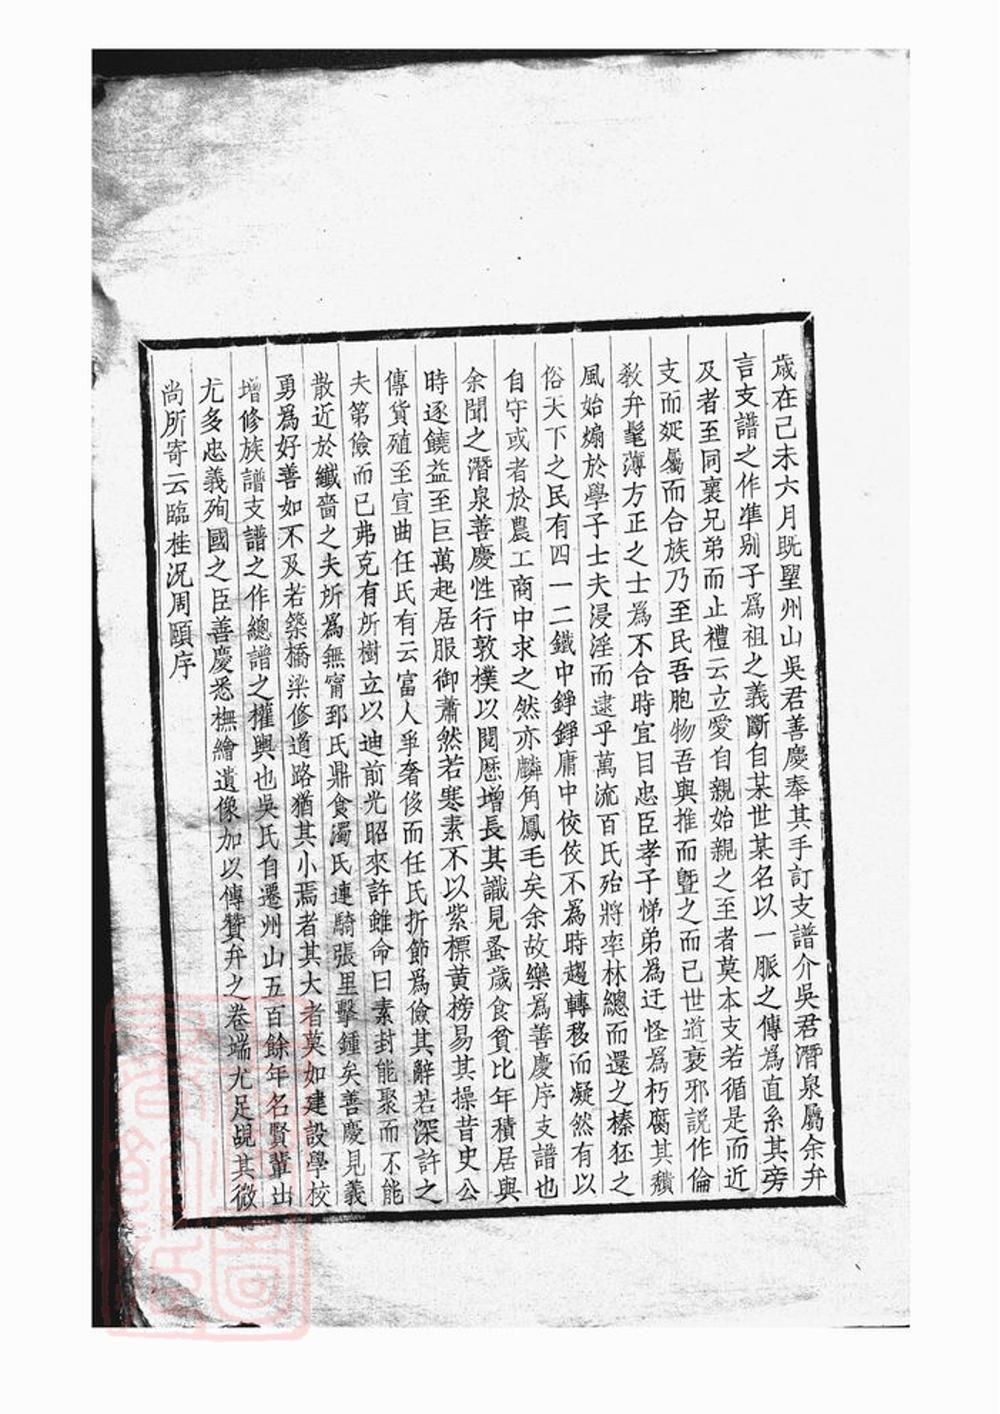 歲在己未六月既朢州山吳君善慶奉其手訂支譜介吳君潛泉屬余弁
言支譜之作準別子爲祖之義斷自某世某名以一脈之傳爲直系其旁
及者至同襄兄弟而止禮云立愛自親始親之至者莫本支若循是而近
支而娫屬而合族乃至民吾胞物吾與推而曁之而已世道衰邪説作倫
敎弁髦薄方正之士爲不合時宜目忠臣孝子悌弟爲迂怪爲朽腐其穨
風始煽於學子士夫浸淫而逮乎萬流百氏殆將率林總而還之榛狉之
俗天下之民有四一二鐵中錚錚庸中佼佼不爲時趨轉移而凝然有以
自守或者於農工商中求之然亦麟角鳳毛矣余故樂爲善慶序支譜也
余聞之潛泉善慶性行敦樸以閱歷增長其識見蚤歲食貧比年積居與
時逐饒益至巨萬起居服御蕭然若寒素不以紫標黃榜易其操昔史公
傳貨殖至宣曲任氏有云富人爭奢侈而任氏折節爲儉其辭若深許之
夫第儉而已弗克有所樹立以迪前光昭來許雖命曰素封能聚而不能
散近於纖嗇之夫所爲無甯郅氏鼎食濁氏連騎張里擊鍾矣善慶見義
勇爲好善如不及若築橋梁修道路猶其小焉者其大者莫如建設學校
增修族譜支譜之作總譜之權輿也吳氏自遷州山五百餘年名賢輩出
尤多忠義殉國之臣善慶悉橅繪遺像加以傳贊弁之卷端尤足覘其微
尚所寄云臨桂況周頤序